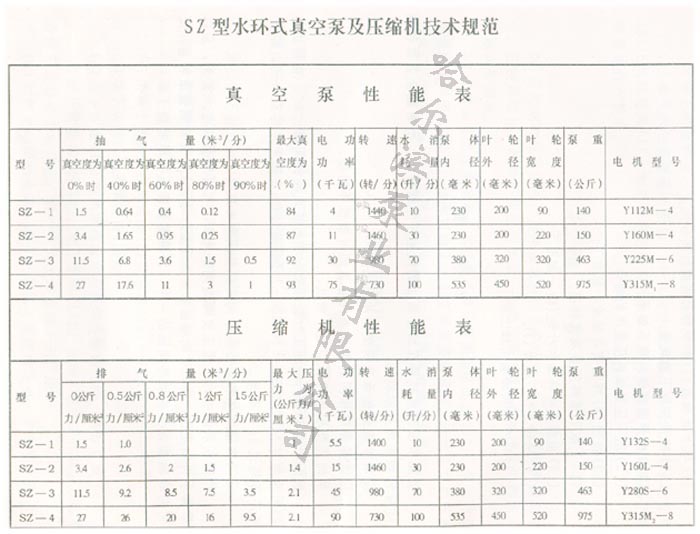 SZ型水环式真空泵及压缩机技术规范
真空泵性能表
型号 抽气量(米³/分) 最大真空度为(%) 电功率(千瓦) 转速(转/分) 水消耗量(升/分) 泵体内径(毫米) 叶轮外径(毫米) 叶轮宽度(毫米) 泵重(公斤) 电机型号
真空度为0%时 真空度为40%时 真空度为60%时 真空度为80%时 真空度为90%时
SZ—1 1.5 0.64 0.4 0.12 84 4 1440 10 230 200 90 140 Y112M—4
SZ—2 3.4 1.65 0.95 0.25 87 11 1460 30 230 200 220 150 Y160M—4
SZ—3 11.5 6.8 3.6 1.5 0.5 92 30 980 70 380 320 320 463 Y225M—6
SZ—4 27 17.6 11 3 1 93 75 730 100 535 450 520 975 Y315M₁—8
压缩机性能表
型号 排气量(米³/分) 最大压力为(公斤力/厘米²) 电功率(千瓦) 转速(转/分) 水消耗量(升/分) 泵体内径(毫米) 叶轮外径(毫米) 叶轮宽度(毫米) 泵重(公斤) 电机型号
0公斤力/厘米² 0.5公斤力/厘米² 0.8公斤力/厘米² 1公斤力/厘米² 1.5公斤力/厘米²
SZ—1 1.5 1.0 1 5.5 1400 10 230 200 90 140 Y132S—4
SZ—2 3.4 2.6 2 1.5 1.4 15 1460 30 230 200 220 150 Y160L—4
SZ—3 11.5 9.2 8.5 7.5 3.5 2.1 45 980 70 380 320 320 463 Y280S—6
SZ—4 27 26 20 16 9.5 2.1 90 730 100 535 450 520 975 Y315M₂—8
哈尔滨泵业有限公司